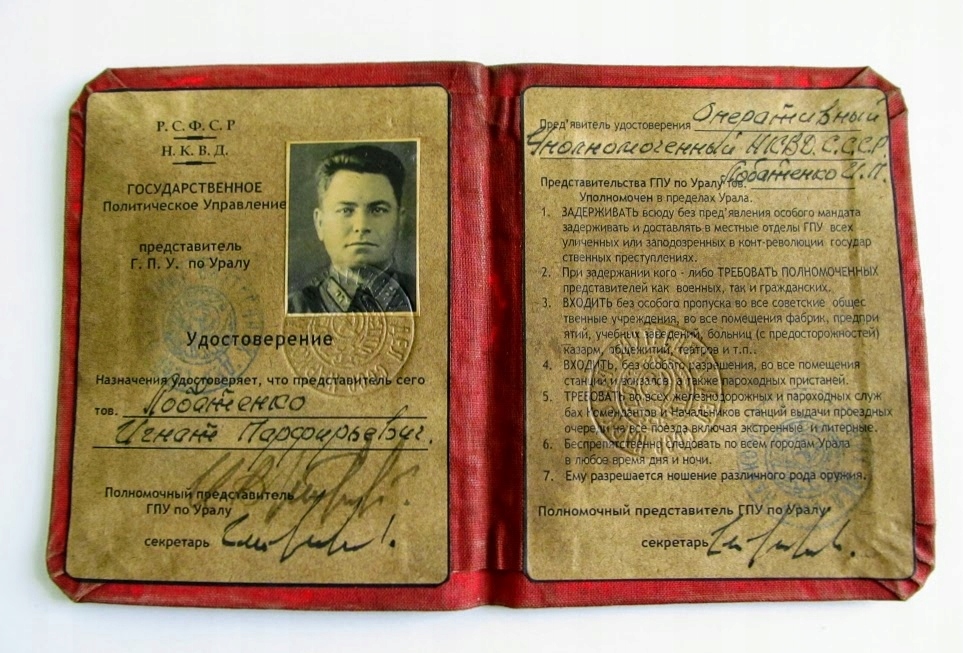 Р.С.Ф.С.Р
Н.К.В.Д.
ГОСУДАРСТВЕННОЕ
Политическое Управление
представитель
Г.П.У. по Уралу
Удостоверение
Назначения удостоверяет, что представитель сего
тов. Лобатенко
Игнат Парфирьевич.
Полномочный представитель
ГПУ по Уралу
секретарь
Пред'явитель удостоверения Оперативный
Уполномоченный НКВД С.С.С.Р.
Представительства ГПУ по Уралу тов. Лобатенко И.П.
Уполномочен в пределах Урала.
1. ЗАДЕРЖИВАТЬ всюду без пред'явления особого мандата
задерживать и доставлять в местные отделы ГПУ всех
уличенных или заподозренных в конт-революции государ
ственных преступлениях.
2. При задержании кого - либо ТРЕБОВАТЬ ПОЛНОМОЧЕННЫХ
представителей как военных, так и гражданских.
3. ВХОДИТЬ без особого пропуска во все советские общес
твенные учреждения, во все помещения фабрик, предпри
ятий, учебных заведений, больниц (с предосторожностей)
казарм, общежитий, театров и т.п..
4. ВХОДИТЬ, без особого разрешения, во все помещения
станций и вокзалов, а также пароходных пристаней.
5. ТРЕБОВАТЬ во всех железнодорожных и пароходных служ
бах Комендантов и Начальников станций выдачи проездных
очереди на все поезда включая экстренные и литерные.
6. Беспрепятственно следовать по всем городам Урала
в любое время дня и ночи.
7. Ему разрешается ношение различного рода оружия.
Полномочный представитель ГПУ по Уралу
секретарь